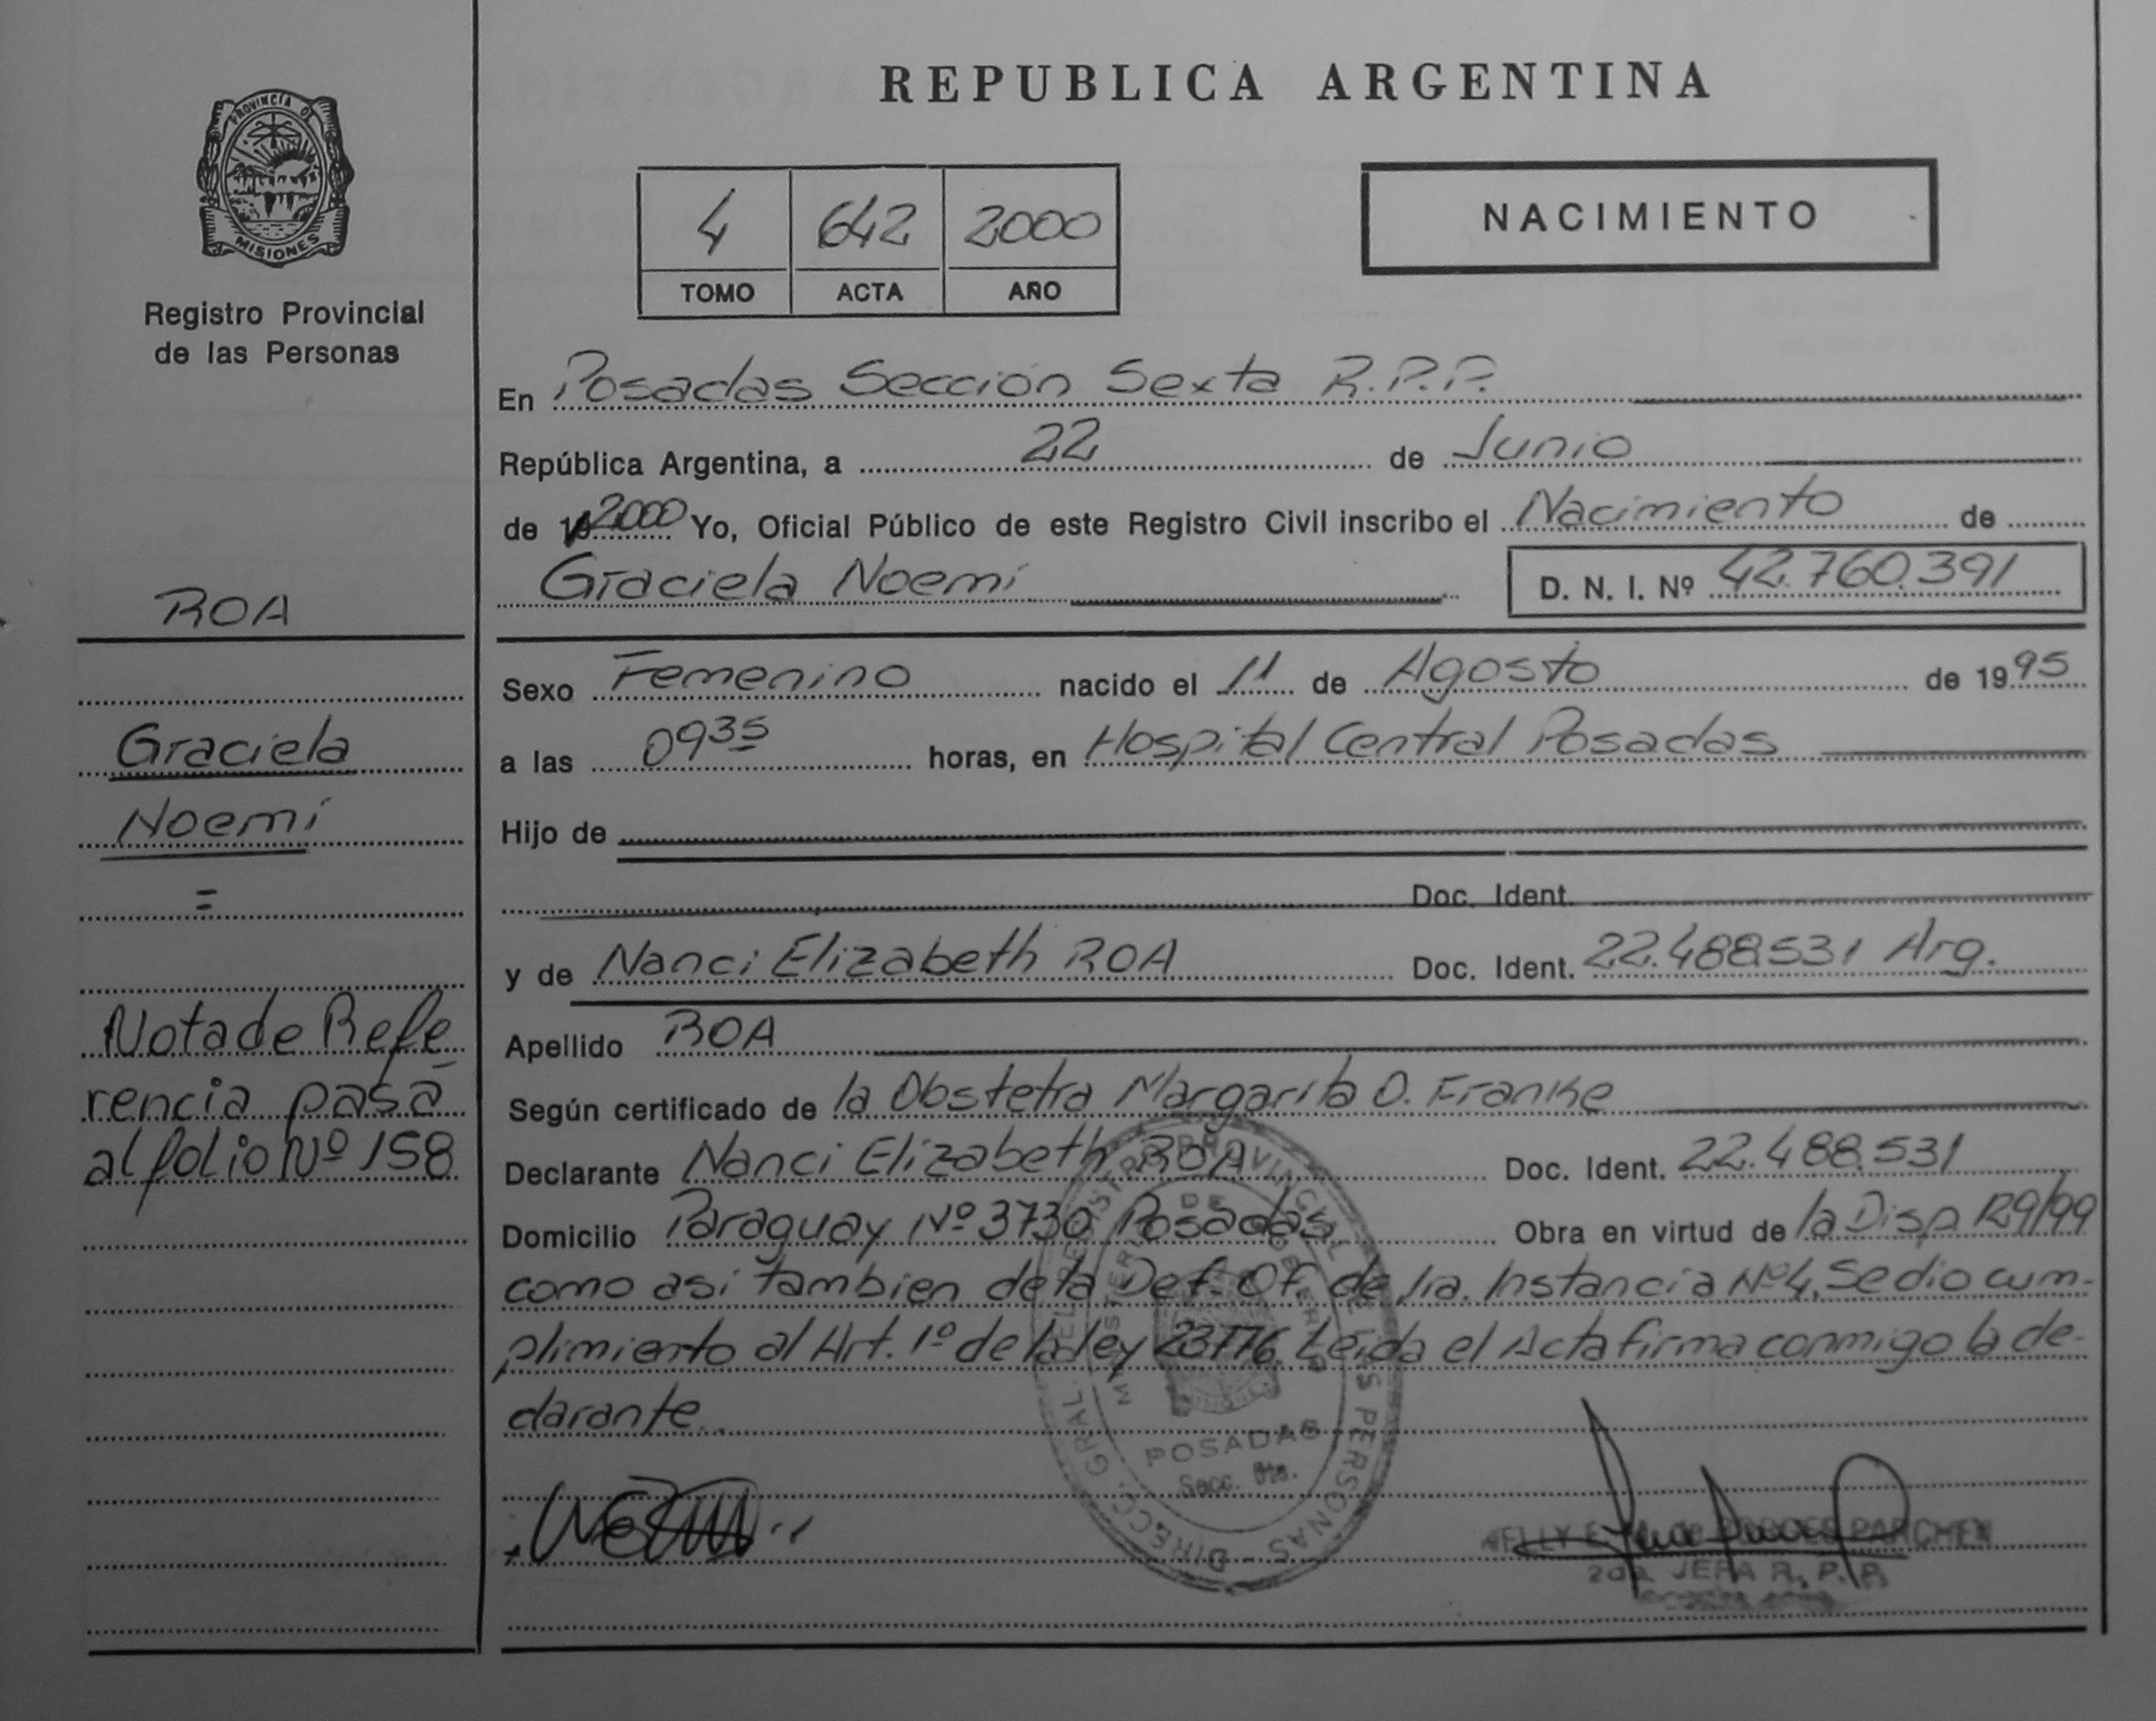 REPUBLICA ARGENTINA
PROVINCIA D
MISIONES
Registro Provincial
de las Personas
4 642 2000
TOMO ACTA AÑO
NACIMIENTO
En Posadas Sección Sexta R.P.P.
República Argentina, a 22 de Junio
de 19 2000 Yo, Oficial Público de este Registro Civil inscribo el Nacimiento de
Graciela Noemí D. N. I. Nº 42.760.391
ROA
Graciela
Noemí
=
Nota de Refe
rencia pasa
al folio Nº 158
Sexo Femenino nacido el 11 de Agosto de 1995
a las 0935 horas, en Hospital Central Posadas
Hijo de
Doc. Ident.
y de Nanci Elizabeth ROA Doc. Ident. 22.488.531 Arg.
Apellido ROA
Según certificado de la Obstetra Margarita O. Franke
Declarante Nanci Elizabeth ROA Doc. Ident. 22.488.531
Domicilio Paraguay Nº 3730 Posadas Obra en virtud de la Disp. 129/99
como asi tambien de la Def. Of. de 1ra. Instancia Nº4. Se dio cum-
plimiento al Art. 1º de la ley 23776. Leida el Acta firma conmigo la de-
clarante.
DIRECC. GRAL. DEL REGISTRO PROVINCIAL DE LAS PERSONAS
MINISTERIO DE GOBIERNO
POSADAS
Secc. 6ta.
NELLY
2da. JEFA R. P. P.